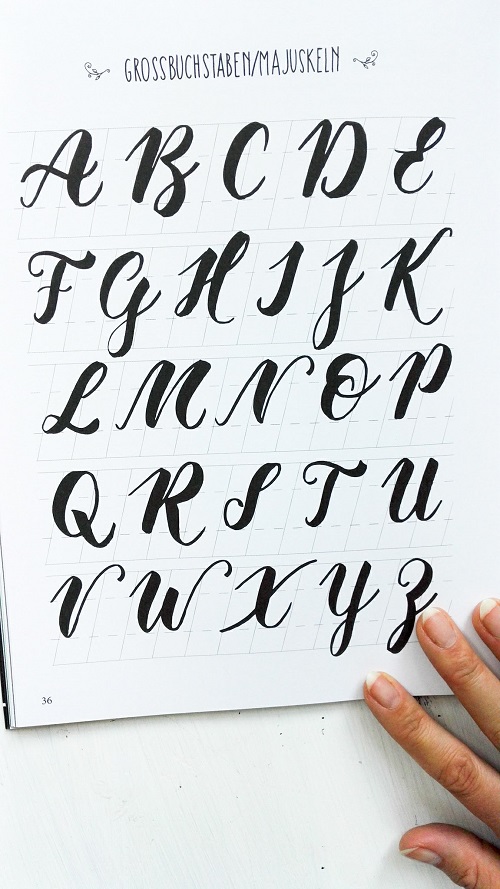 GROSSBUCHSTABEN/MAJUSKELN
A B C D E
F G H I J K
L M N O P
Q R S T U
V W X Y Z
36